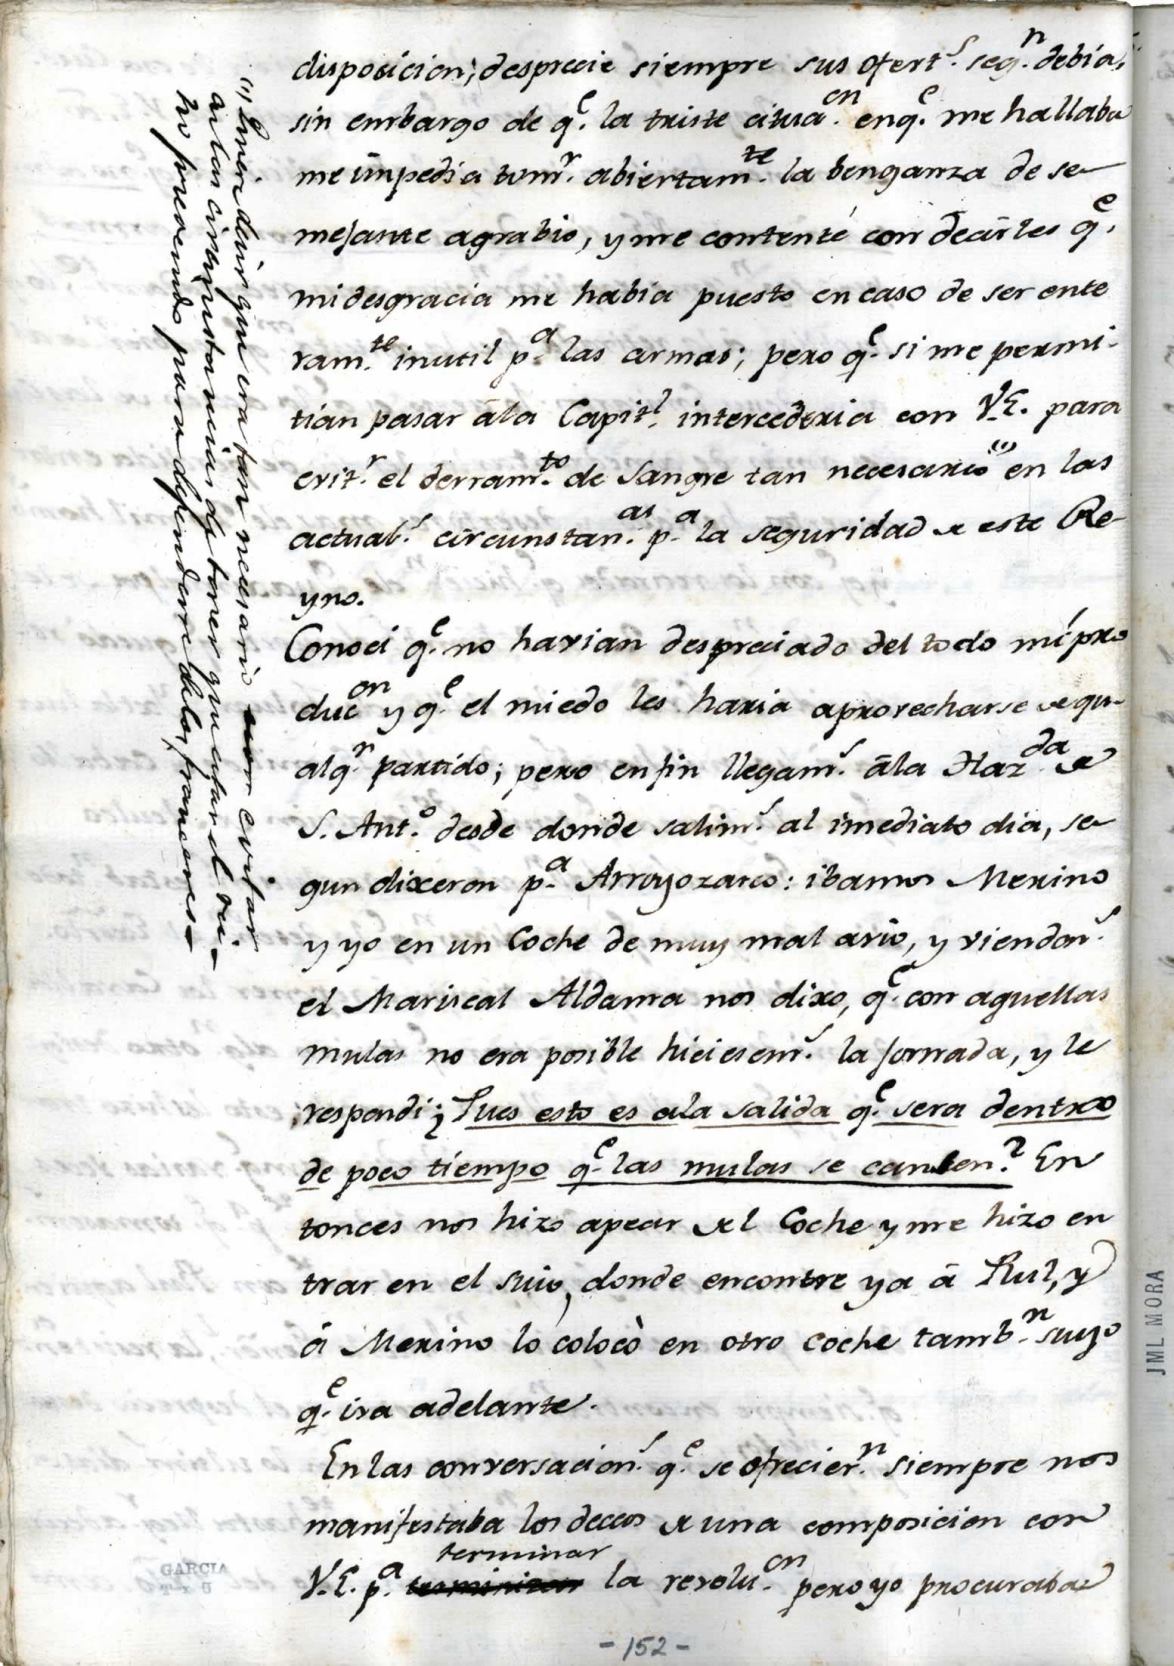 disposicion; desprecie siempre sus ofert.s seg.n debia,
sin embargo de q.e la triste citua.on enq.e me hallaba
me impedia tom.r abiertam.te la benganza de se-
mejante agrabio, y me contenté con decirles q.e
mi desgracia me habia puesto en caso de ser ente
ram.te inutil p.a las armas; pero q.e si me permi-
tian pasar âla Capit.l intercederia con V.E. para
evit.r el derram.to de sangre tan necesario (1) en las
actual.s circunstan.as p.a la seguridad de este Re-
yno.
Conoci q.e no havian despreciado del todo mi pro
duc.on y q.e el miedo les haria aprovecharse de qu-
alq.r partido; pero en fin llegam.s âla Haz.da de
S. Ant.o desde donde salim.s al imediato dia, se-
gun dixeron p.a Arroyozarco: ibamos Merino
y yo en un Coche de muy mal avio, y viendon.s
el Mariscal Aldama nos dixo, q.e con aquellas
mulas no era posible hiciesem.s la jornada, y le
respondi: ¿Pues esto es ala salida q.e sera dentro
de poco tiempo q.e las mulas se cansen? En
tonces nos hizo apear del Coche y me hizo en
trar en el suio, donde encontre ya â Rul, y
â Merino lo colocò en otro coche tamb.n suyo
q.e iva adelante.
En las conversacion.s q.e se ofrecier.n siempre nos
manifestaba los deceos de una composicion con
terminar
V.E. p.a la revolu.on pero yo procuraba
(1) Querrá decir que era tan necesario evitar
en las circunstancias de tener que
no habiendo para defenderse de los franceses
- 152 -
JML MORA
GARCIA